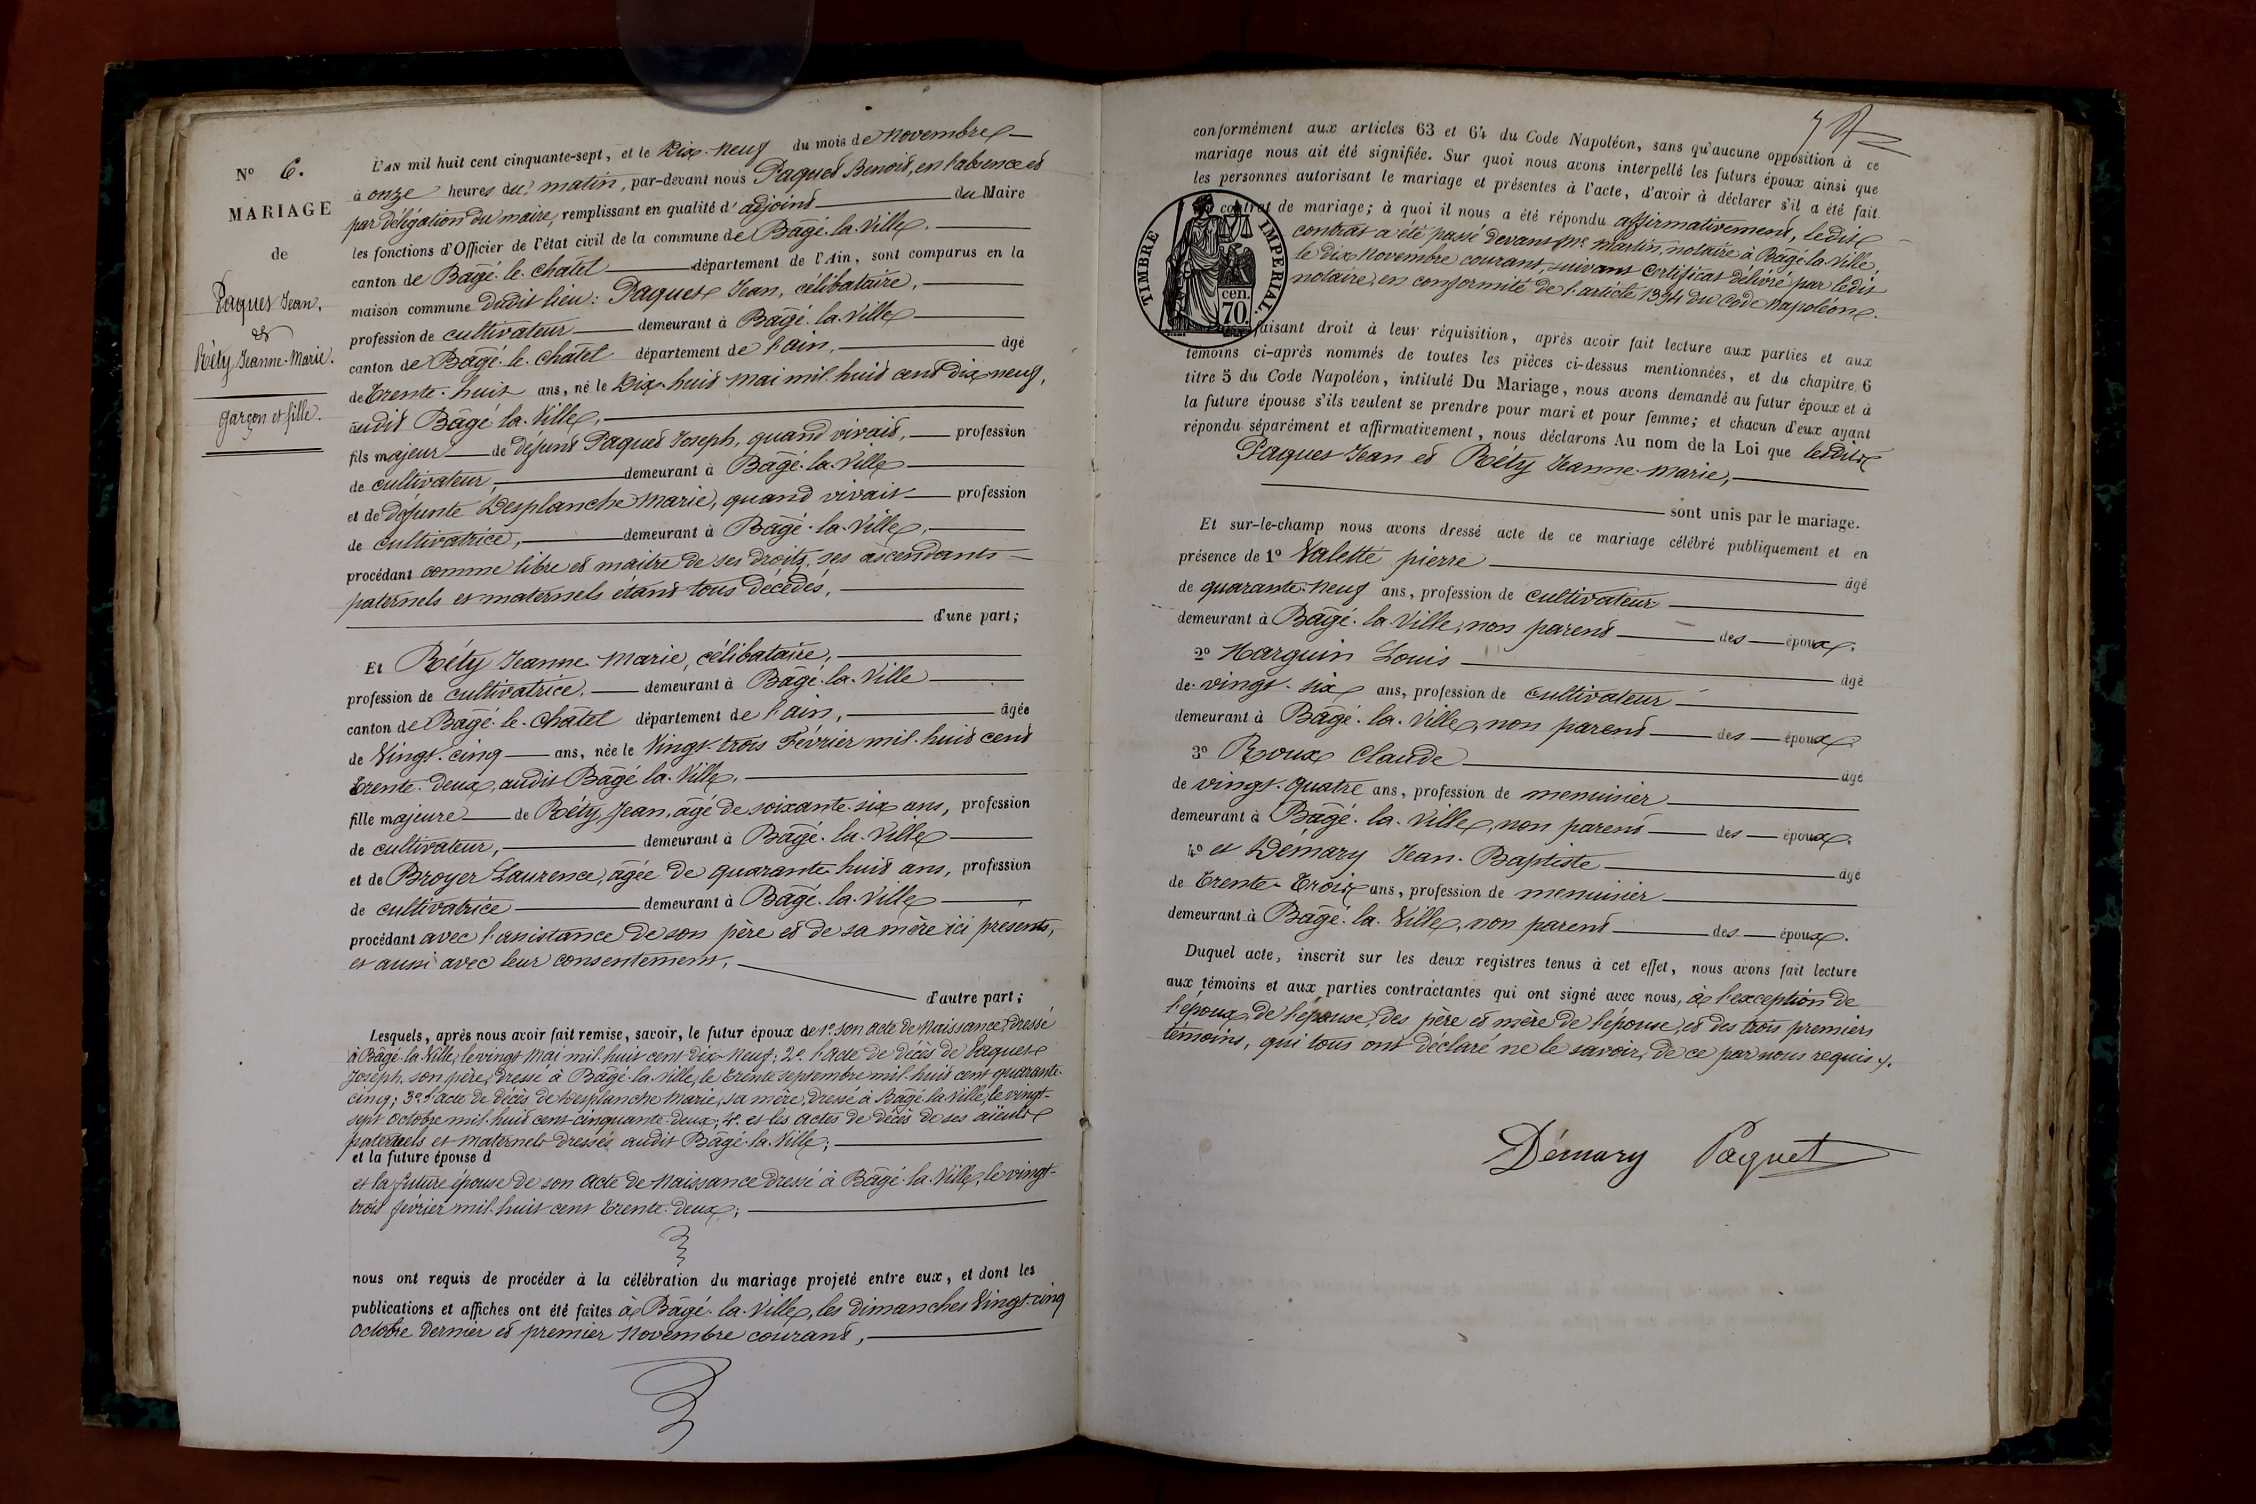 N° 6.
MARIAGE
de
Paques Jean,
et
Réty Jeanne-Marie.
garçon et fille.
L'AN mil huit cent cinquante-sept, et le Dix-neuf du mois de Novembre
à onze heures du matin, par-devant nous Paques Benoit, en l'absence et
par délégation du maire, remplissant en qualité d'adjoint du Maire
les fonctions d'Officier de l'état civil de la commune de Bâgé-la-Ville,
canton de Bâgé-le-Châtel département de l'Ain, sont comparus en la
maison commune dudit lieu: Paques Jean, célibataire,
profession de cultivateur demeurant à Bâgé-la-Ville
canton de Bâgé-le-Châtel département de l'ain, âgé
de Trente-huit ans, né le Dix-huit mai mil-huit cent Dix-neuf,
audit Bâgé-la-Ville,
fils majeur de défunt Paques Joseph, quand vivait, profession
de cultivateur, demeurant à Bâgé-la-Ville
et de défunte Desplanche Marie, quand vivait profession
de cultivatrice, demeurant à Bâgé-la-Ville,
procédant comme libre et maitre de ses droits, ses ascendants
paternels et maternels étant tous décédés,
d'une part;
Et Réty Jeanne-Marie, célibataire,
profession de cultivatrice, demeurant à Bâgé-la-Ville
canton de Bâgé-le-Châtel département de l'ain, âgée
de Vingt-cinq ans, née le Vingt-trois Février mil-huit cent
Trente-deux, audit Bâgé-la-Ville,
fille majeure de Réty Jean, âgé de soixante-six ans, profession
de cultivateur, demeurant à Bâgé-la-Ville
et de Broyer Laurence, âgée de quarante-huit ans, profession
de cultivatrice demeurant à Bâgé-la-Ville
procédant avec l'assistance de son père et de sa mère ici presents,
et aussi avec leur consentement,
d'autre part;
Lesquels, après nous avoir fait remise, savoir, le futur époux de 1° son acte de Naissance, dressé
à Bâgé-la-Ville, le vingt Mai mil-huit cent Dix-neuf; 2° l'acte de décès de Paques
Joseph, son père, dressé à Bâgé-la-Ville, le trente septembre mil-huit cent quarante-
cinq; 3° l'acte de décès de Desplanche Marie, sa mère, dressé à Bâgé-la-Ville, le vingt-
sept octobre mil-huit cent-cinquante-deux; 4° et les actes de décès de ses aïeuls
paternels et maternels dressés audit Bâgé-la-Ville;
et la future épouse d
et la future épouse de son acte de Naissance dressé à Bâgé-la-Ville, le vingt-
trois février mil-huit cent Trente-deux;
nous ont requis de procéder à la célébration du mariage projeté entre eux, et dont les
publications et affiches ont été faites à Bâgé-la-Ville, les dimanches Vingt-cinq
octobre dernier et premier Novembre courant,
conformément aux articles 63 et 64 du Code Napoléon, sans qu'aucune opposition à ce
mariage nous ait été signifiée. Sur quoi nous avons interpellé les futurs époux ainsi que
les personnes autorisant le mariage et présentes à l'acte, d'avoir à déclarer s'il a été fait
contrat de mariage; à quoi il nous a été répondu affirmativement, ledit
contrat a été passé devant Me Martin, notaire à Bâgé-la-Ville,
le Dix Novembre courant, suivant certificat délivré par ledit
notaire, en conformité de l'article 1394 du Code Napoléon.
TIMBRE IMPERIAL
cen.
70.
faisant droit à leur réquisition, après avoir fait lecture aux parties et aux
témoins ci-après nommés de toutes les pièces ci-dessus mentionnées, et du chapitre 6
titre 5 du Code Napoléon, intitulé Du Mariage, nous avons demandé au futur époux et à
la future épouse s'ils veulent se prendre pour mari et pour femme; et chacun d'eux ayant
répondu séparément et affirmativement, nous déclarons Au nom de la Loi que lesdits
Paques Jean et Réty Jeanne-Marie,
sont unis par le mariage.
Et sur-le-champ nous avons dressé acte de ce mariage célébré publiquement et en
présence de 1° Valette pierre âgé
de quarante-neuf ans, profession de cultivateur
demeurant à Bâgé-la-Ville, non parent des époux.
2° Marguin Louis âgé
de vingt-six ans, profession de cultivateur
demeurant à Bâgé-la-Ville, non parent des époux.
3° Roux Claude âgé
de vingt-quatre ans, profession de menuisier
demeurant à Bâgé-la-Ville, non parent des époux.
4° et Démary Jean-Baptiste âgé
de Trente-Trois ans, profession de menuisier
demeurant à Bâgé-la-Ville, non parent des époux.
Duquel acte, inscrit sur les deux registres tenus à cet effet, nous avons fait lecture
aux témoins et aux parties contractantes qui ont signé avec nous, à l'exception de
l'époux, de l'épouse, des père et mère de l'épouse, et des trois premiers
témoins, qui tous ont déclaré ne le savoir, de ce par nous requis.
Démary Paquet